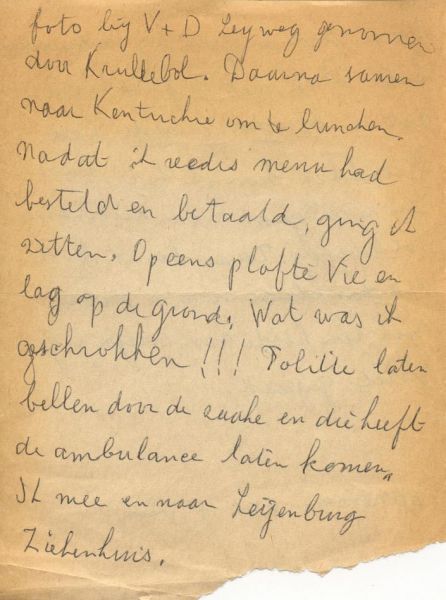 foto bij V + D Leyweg genomen
door Krullebol. Daarna samen
naar Kentuchie om te lunchen.
Nadat ik reeds menu had
besteld en betaald, ging ik
zitten. Opeens plofte Vie en
lag op de grond. Wat was ik
geschrokken !!! Politie laten
bellen door de zaake en die heeft
de ambulance laten komen,,
Ik mee en naar Leijenburg
Ziekenhuis.